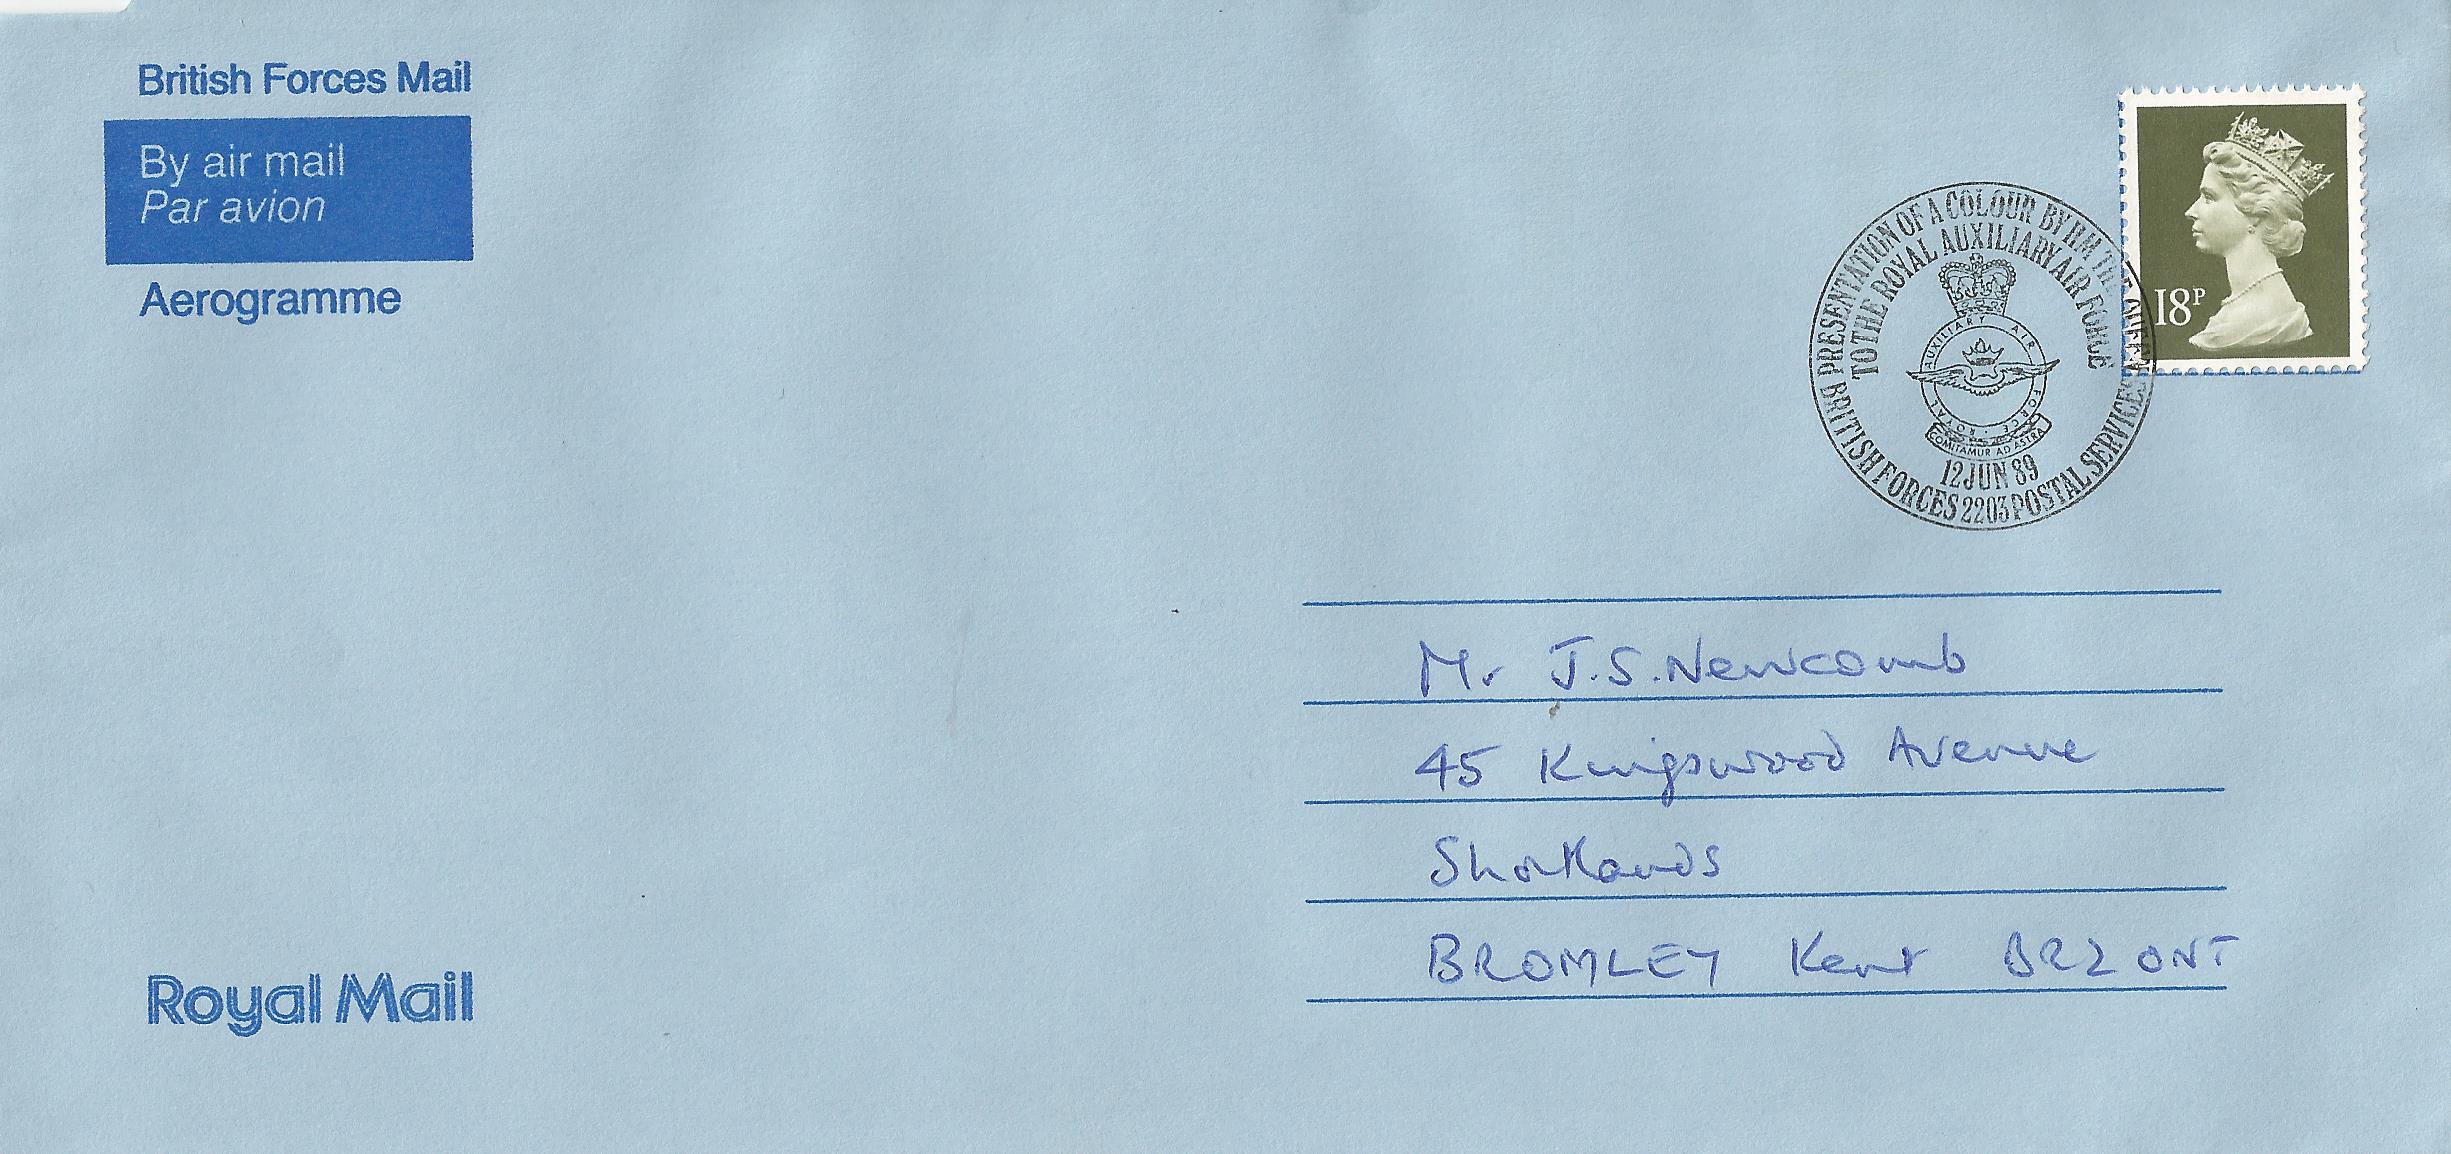 British Forces Mail
By air mail
Par avion
Aerogramme
PRESENTATION OF A COLOUR BY H.M THE QUEEN
TO THE ROYAL AUXILIARY AIR FORCE
AUXILIARY AIR FORCE · ROYAL
COMITAMUR AD ASTRA
12 JUN 89
BRITISH FORCES 2203 POSTAL SERVICES
18P
Mr J.S. Newcomb
45 Kingswood Avenue
Shortlands
BROMLEY Kent BR2 0NT
Royal Mail